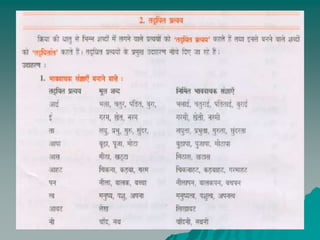 2. तद्धित प्रत्यय
क्रिया की धातु से भिन्न शब्दों में लगने वाले प्रत्ययों को 'तद्धित प्रत्यय' कहते हैं तथा इनसे बनने वाले शब्दों
को 'तद्धितांत' कहते हैं। तद्धित प्रत्ययों के प्रमुख उदाहरण नीचे दिए जा रहे हैं।
उदाहरण :
1. भाववाचक संज्ञाएँ बनाने वाले :
तद्धित प्रत्यय मूल शब्द निर्मित भाववाचक संज्ञाएँ
आई भला, चतुर, पंडित, बुरा, भलाई, चतुराई, पंडिताई, बुराई
ई गरम, खेत, नरम गरमी, खेती, नरमी
ता लघु, प्रभु, गुरु, सुंदर, लघुता, प्रभुता, गुरुता, सुंदरता
आपा बूढ़ा, पूजा, मोटा बुढ़ापा, पुजापा, मोटापा
आस मीठा, खट्टा मिठास, खटास
आहट चिकना, कड़वा, गरम चिकनाहट, कड़वाहट, गरमाहट
पन नीला, बालक, बच्चा नीलापन, बालकपन, बचपन
त्व मनुष्य, पशु, अपना मनुष्यत्व, पशुत्व, अपनत्व
आवट लेख लिखावट
नी चाँद, नथ चाँदनी, नथनी